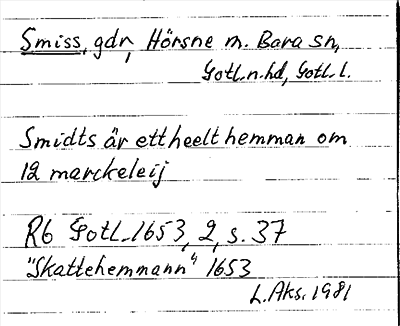 Smiss, gdr, Hörsne m. Bara sn,
Gotl. n. hd, Gotl. l.
Smidts är ett heelt hemman om
12 marckeleij
R6 Gotl. 1653, 2, s. 37
"Skattehemmann" 1653
L. Aks. 1981